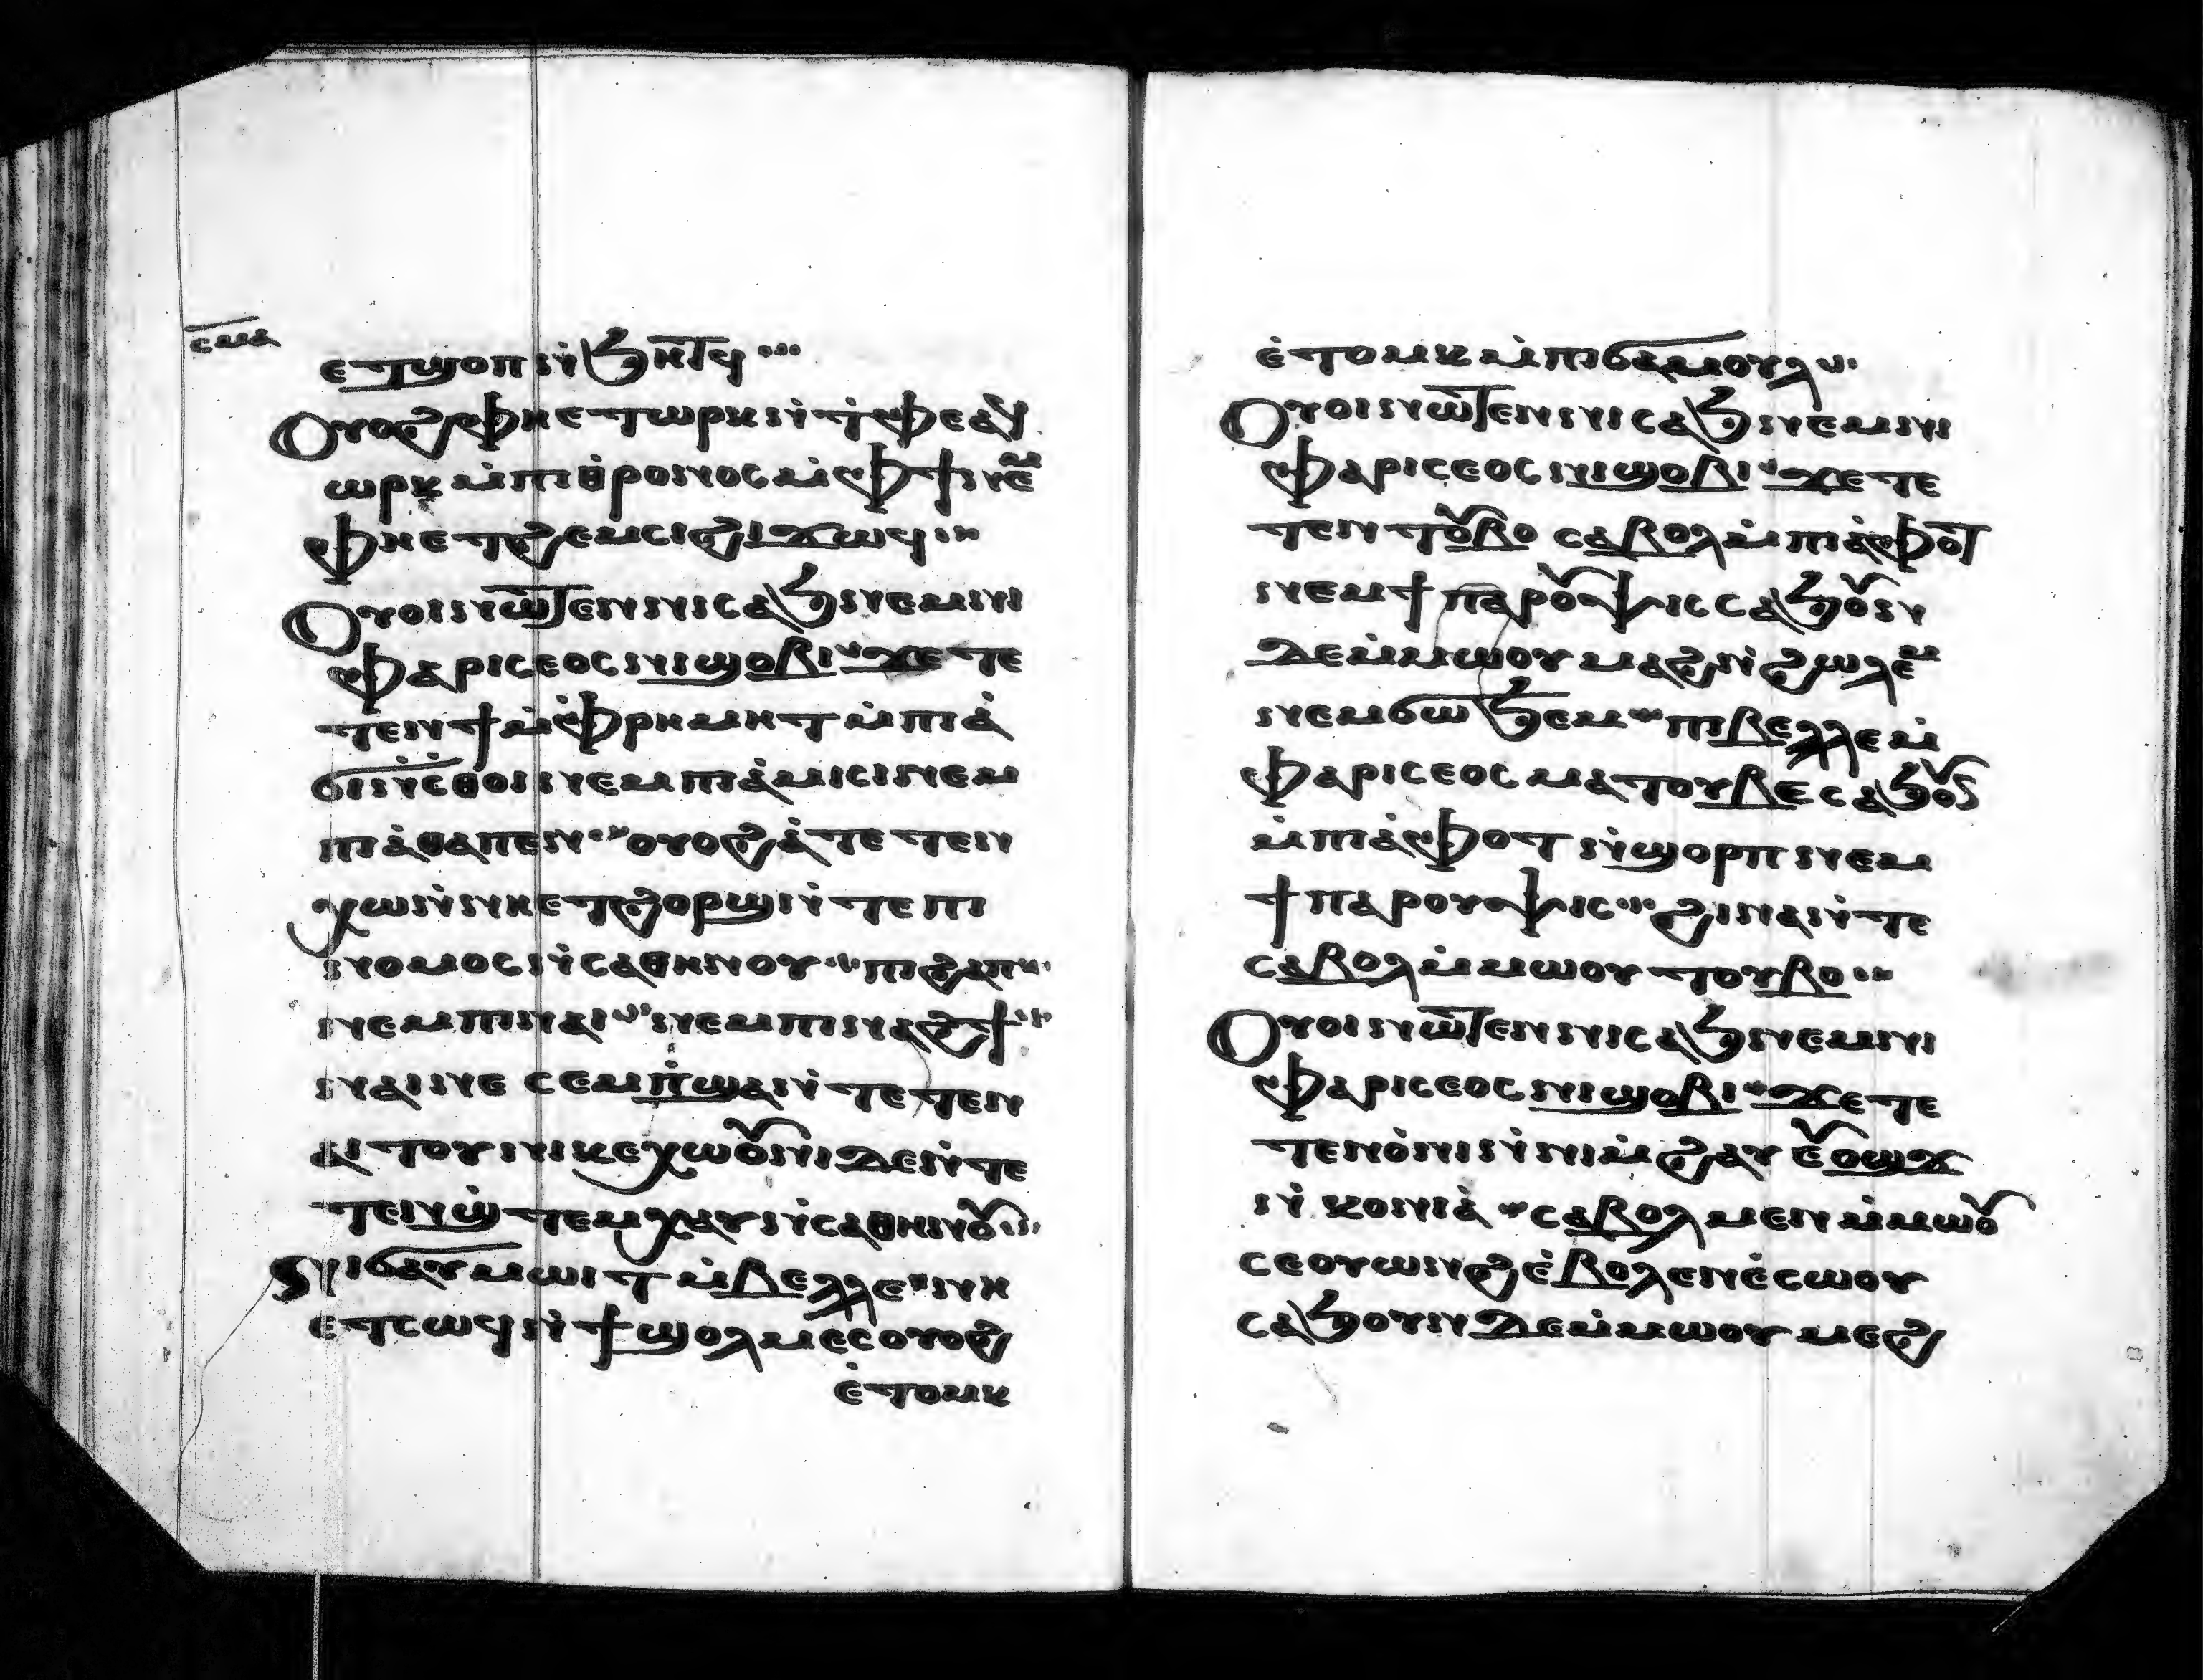 ⲥⲙⲁ
ⲉⲧϣⲟⲡ ⲛ̇ϧⲏⲧϥ
Ⲟⲩⲟϩ ⲫⲏⲉⲧⲱⲣⲕ ⲛ̇ⲧ̇ⲫⲉ ⲁϥ
ⲱⲣⲕ ⲙ̇ⲡⲓⲑⲣⲟⲛⲟⲥ ⲙ̇ⲫϯ ⲛⲉⲙ
ⲫⲏⲉⲧϩⲉⲙⲥⲓ ϩⲓϫⲱϥ
Ⲟⲩⲟⲓ ⲛⲱⲧⲉⲛ ⲛⲓⲥⲁϧ ⲛⲉⲙ ⲛⲓ
ⲫⲁⲣⲓⲥⲉⲟⲥ ⲛⲓϣⲟⲃⲓ ϫⲉ ⲧⲉ
ⲧⲉⲛϯ ⲙ̇ⲫⲣⲏⲙⲏⲧ ⲙ̇ⲡⲓⲁ̇
ϭⲓⲛ̇ⲥ̇ⲑⲟⲓ ⲛⲉⲙ ⲡⲓⲁ̇ⲙⲓⲥⲓ ⲛⲉⲙ
ⲡⲓⲁ̇ⲑⲁⲡⲉⲛ ⲟⲩⲟϩ ⲁ̇ⲧⲉⲧⲉⲛ
ⲭⲱ ⲛ̇ⲛⲏⲉⲧϩⲟⲣϣ ⲛ̇ⲧⲉ ⲡⲓ
ⲛⲟⲙⲟⲥ ⲛ̇ⲥⲁⲑⲏⲛⲟⲩ ⲡⲓϩⲁⲡ
ⲛⲉⲙ ⲡⲓⲛⲁⲓ ⲛⲉⲙ ⲡⲓⲛⲁϩϯ
ⲛⲁⲓ ⲛⲉ ⲥⲉⲙⲡ̇ϣⲁ ⲛ̇ⲧⲉⲧⲉⲛ
ⲁⲓⲧⲟⲩ ⲛⲓⲕⲉⲭⲱⲟⲩⲛⲓ ⲇⲉ ⲛ̇ⲧⲉ
ⲧⲉⲛϣ̇ⲧⲉⲙⲭⲁⲩ ⲛ̇ⲥⲁⲑⲏⲛⲟⲩ
Ⲛⲓϭⲁⲩⲙⲱⲓⲧ ⲙ̇ⲃⲉⲗⲗⲉ ⲛⲏ
ⲉⲧⲥⲱϥ ⲛ̇ϯϣⲟⲗⲙⲉⲥ ⲟⲩⲟϩ
ⲉ̇ⲧⲟⲙⲕ
ⲉ̇ⲧⲟⲙⲕ ⲙ̇ⲡⲓϭⲁⲙⲟⲩⲗ
Ⲟⲩⲟⲓ ⲛⲱⲧⲉⲛ ⲛⲓⲥⲁϧ ⲛⲉⲙ ⲛⲓ
ⲫⲁⲣⲓⲥⲉⲟⲥ ⲛⲓϣⲟⲃⲓ ϫⲉ ⲧⲉ
ⲧⲉⲛⲧⲟⲩⲃⲟ ⲥⲁⲃⲟⲗ ⲙ̇ⲡⲓⲁ̇ⲫⲟⲧ
ⲛⲉⲙ ϯⲡⲁⲣⲟⲩⲯⲓⲥ ⲥⲁϧⲟⲩⲛ
ⲇⲉ ⲙ̇ⲙⲱⲟⲩ ⲙⲁϩ ⲛ̇ϩⲱⲗⲉⲙ
ⲛⲉⲙ ϭⲱϧⲉⲙ ⲡⲓⲃⲉⲗⲗⲉ ⲙ̇
ⲫⲁⲣⲓⲥⲉⲟⲥ ⲙⲁⲧⲟⲩⲃⲉ ⲥⲁϧⲟⲩⲛ
ⲙ̇ⲡⲓⲁ̇ⲫⲟⲧ ⲛ̇ϣⲟⲣⲡ ⲛⲉⲙ
ϯⲡⲁⲣⲟⲩⲯⲓⲥ ϩⲓⲛⲁ ⲛ̇ⲧⲉ
ⲥⲁⲃⲟⲗ ⲙ̇ⲙⲱⲟⲩ ⲧⲟⲩⲃⲟ
Ⲟⲩⲟⲓ ⲛⲱⲧⲉⲛ ⲛⲓⲥⲁϧ ⲛⲉⲙ ⲛⲓ
ⲫⲁⲣⲓⲥⲉⲟⲥ ⲛⲓϣⲟⲃⲓ ϫⲉ ⲧⲉ
ⲧⲉⲛⲟ̇ⲛⲓ ⲛ̇ⲛⲓⲙ̇ϩⲁⲩ ⲉⲩⲟϣϫ
ⲛ̇ⲕⲟⲛⲓⲁ̇ ⲥⲁⲃⲟⲗ ⲙⲉⲛ ⲙ̇ⲙⲱⲟⲩ
ⲥⲉⲟⲩⲱⲛϩ ⲉ̇ⲃⲟⲗ ⲉⲛⲉ̇ⲥⲱⲟⲩ
ⲥⲁϧⲟⲩⲛ ⲇⲉ ⲙ̇ⲙⲱⲟⲩ ⲙⲉϩ